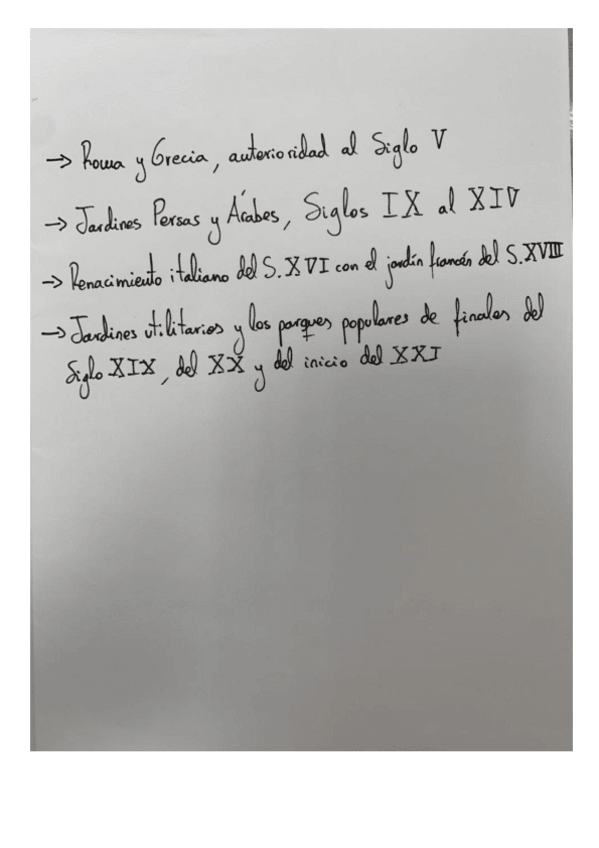 → Roma y Grecia, anterioridad al Siglo V
→ Jardines Persas y Árabes, Siglos IX al XIV
→ Renacimiento italiano del S.XVI con el jardín francés del S.XVIII
→ Jardines utilitarios y los parques populares de finales del
Siglo XIX, del XX y del inicio del XXI